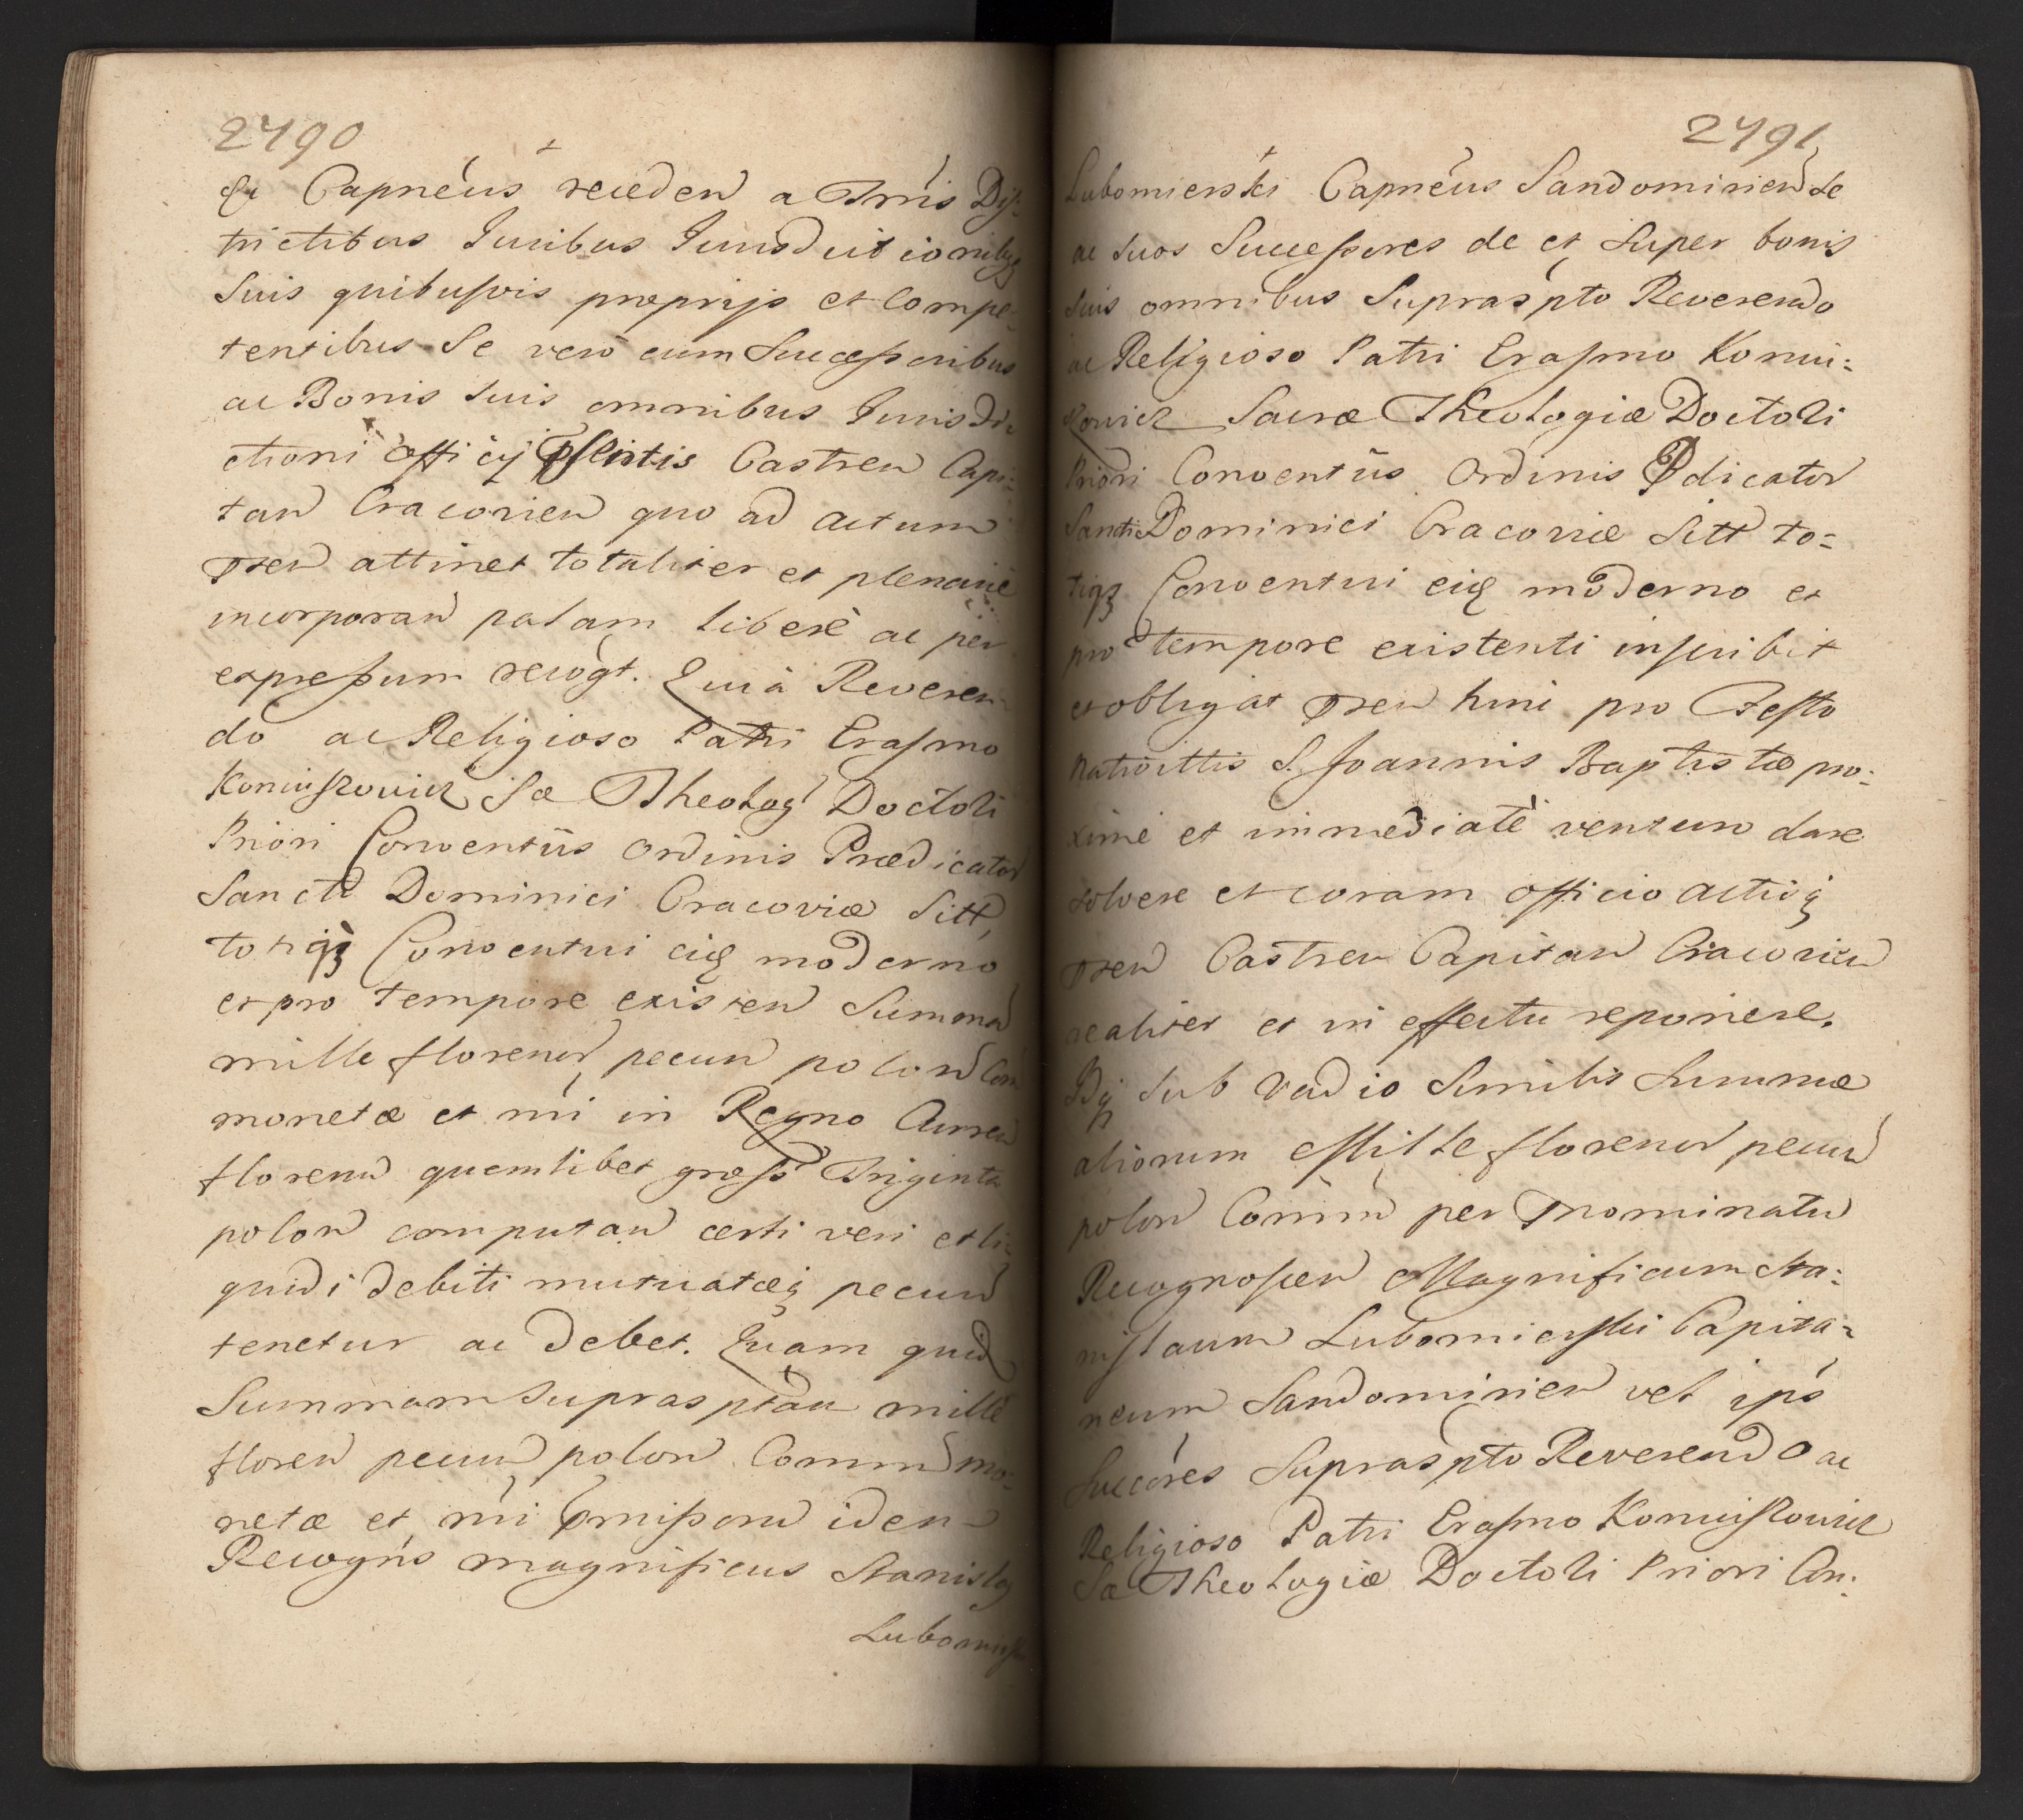 2490
sis Capnéus receden a Trris Dis:
trictibus Juribus Jurisdictionibusq
Suis quibusvis proprijs et Compe:
tentibus Se verò cum Successoribus
ac Bonis suis omnibus Jurisdi
ctioni officij pñtis Castren Capi:
tan Cracovien quo ad actum
pren attinet totaliter et plenariè
incorporan palam liberè ac per
expressum recogt. Quià Reveren:
do ac Religioso Patri Erasmo
Koniuszowicz Sæ Theolog Doctori
Priori Conventûs Ordinis Prædicator
Sancti Dominici Cracoviæ Sitt,
totiqz Conventui eiq moderno
et pro tempore existen Summa
mille floren pecun polon Com
monetæ et nri in Regno Curren
floren quemlibet gross Triginta
polon computan certi veri et li:
quidi debiti mutuatæq pecun
tenetur ac debet. Quam quid
Summam suprasptam mille
floren pecun polon Commun mo:
netæ et nri præmissorum idem
Recogns magnificus Stanislaq
Lubomirs
2491
Lubomierski Capnéus Sandomirien se
ac suos Successores de et super bonis
suis omnibus Suprasptô Reverendo
ac Religioso Patri Erasmo Koniu:
szowicz Sacræ Theologiæ Doctori
Priori Conventûs Ordinis Pdicator
Sancti Dominici Cracoviæ Sitt to:
tiqz Conventui eiq moderno et
pro tempore existenti inscribit
et obligat pren hinc pro Festo
Nativittis S. Joannis Baptistæ pro:
ximè et immediatè ventur dare
solvere et coram officio actisq
pren Castren Capitan Cracovien
realiter et in effectu reponere.
Idq sub Vadio Similis Summæ
aliorum Mille floren pecun
polon Commun per pnominatum
Recognoscen Magnificum Sta:
nislaum Lubomierski Capita:
neum Sandomirien vel ips
Succóres Suprasptô Reverendo ac
Religioso Patri Erasmo Koniuszowicz
Sæ Theologiæ Doctori Priori Con: